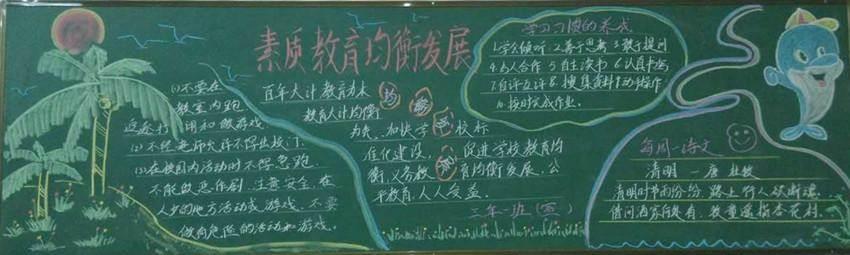 素质教育均衡发展
(1)不要在
教室内跑
追逐打闹和做游戏.
(2)不经老师允许不得出校门.
(3)在校园内活动时不得急跑.
不能做恶作剧.注意安全.在
人少的地方活动或游戏.不要
做有危险的活动和游戏.
百年大计 教育为本
教育大计均衡
为先.加快学校标
准化建设,促进学校教育均
衡,义务教育均衡发展,公
平教育,人人受益.
二年一班(宣)
学习习惯的养成
1.学会倾听 2.善于思考 3.敢于提问
4.与人合作 5.自主读书 6.认真书写
7.自评互评 8.搜集资料 9.动手操作
10.按时完成作业.
每周一诗文
清明 一唐 杜牧
清明时节雨纷纷,路上行人欲断魂.
借问酒家何处有,牧童遥指杏花村.